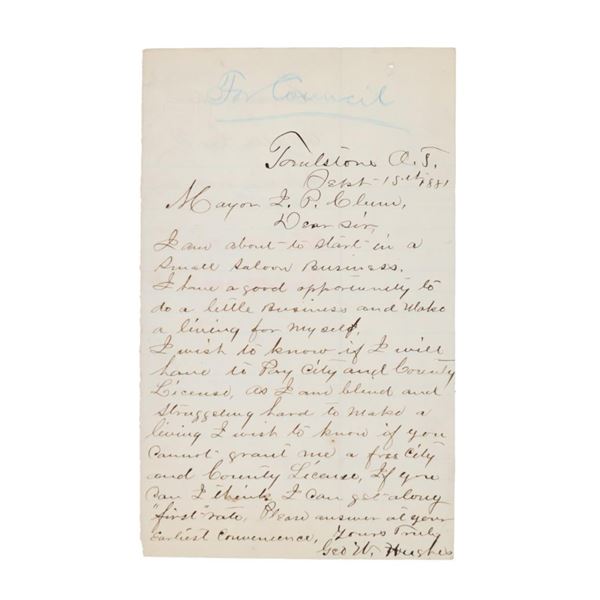 For Council
Tombstone A.T.
Sept 15th 1881
Mayor J. P. Clum,
Dear sir,
I am about to start in a
small saloon Business.
I have a good opportunity to
do a little Business and Make
a living for Myself.
I wish to know if I will
have to Pay City and County
License, as I am blind and
struggeling hard to Make a
living I wish to know if you
cannot grant me a free City
and County License, If you
can I think I can get along
"first" rate, Please answer at your
earliest convenience, Yours Truly
Geo W. Hughes